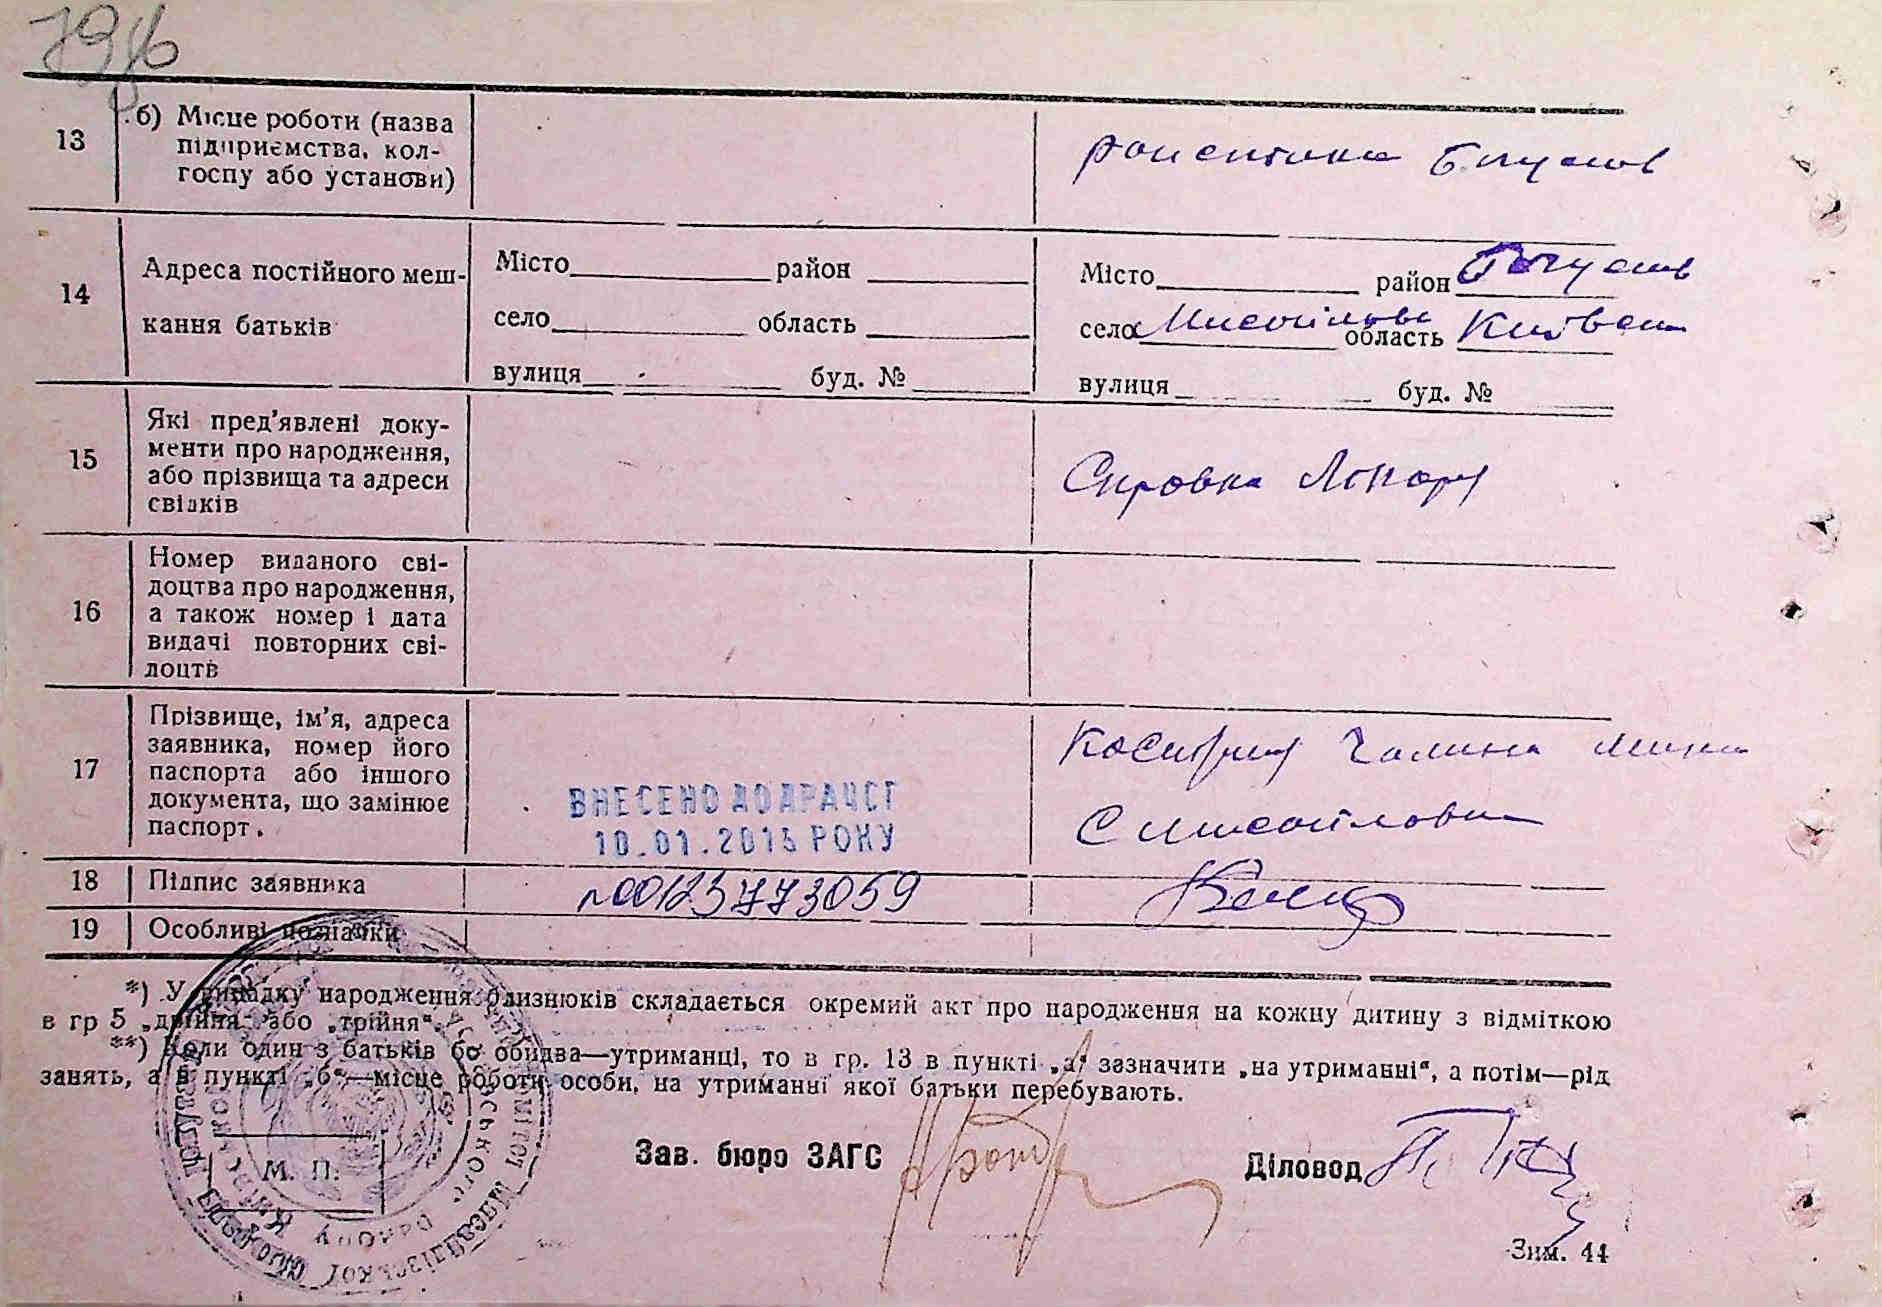 13
б) Місце роботи (назва
підприємства, кол-
госпу або установи)
14
Адреса постійного меш-
кання батьків
Місто район
село область
вулиця буд. №
Місто район Богуслав
село Мисайлівка область Київськ
вулиця буд. №
15
Які пред'явлені доку-
менти про народження,
або прізвища та адреси
свідків
Справка
16
Номер виданого сві-
доцтва про народження,
а також номер і дата
видачі повторних сві-
доцтв
17
Прізвище, ім'я, адреса
заявника, номер його
паспорта або іншого
документа, що замінює
паспорт.
ВНЕСЕНО ДО ДРАЦСГ
10.01.2015 РОКУ
Галина
18
Підпис заявника
№00123773059
19
Особливі позначки
*) У випадку народження близнюків складається окремий акт про народження на кожну дитину з відміткою
в гр 5 „двійня“ або „трійня“.
**) Коли один з батьків бо обидва—утриманці, то в гр. 13 в пункті „а“ зазначити „на утриманні“, а потім—рід
занять, а в пункті „б“—місце роботи особи, на утриманні якої батьки перебувають.
М. П.
Зав. бюро ЗАГС
Діловод
Зим. 44